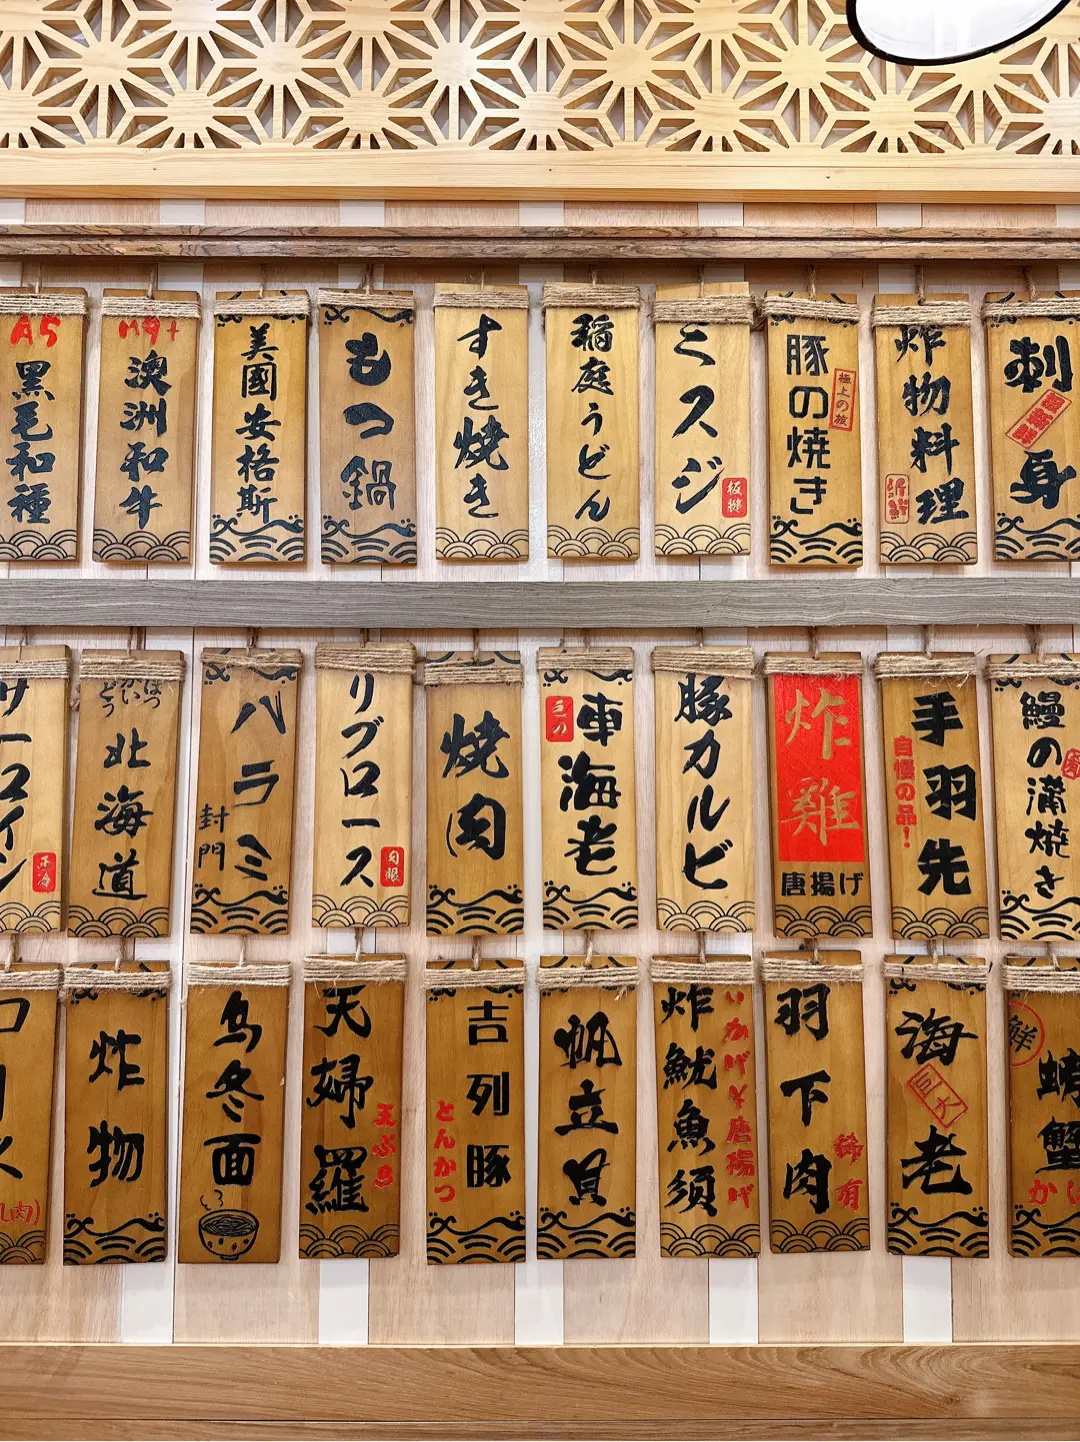 A5
黑毛和種
M9+
澳洲和牛
美國安格斯
もつ鍋
すき焼き
稲庭うどん
ミスジ
板腱
豚の焼き
極上の技
炸物料理
刺身
サーロイン
西冷
ほつ
かい
どう
北海道
バラミ
封門
リブロース
肉眼
焼肉
車海老
豚カルビ
炸雞
唐揚げ
手羽先
自慢の品!
鰻の蒲焼き
炸物
烏冬面
天婦羅
天ぷら
吉列豚
とんかつ
帆立貝
炸魷魚須
いかげそ唐揚げ
羽下肉
稀有
海老
巨大
鮮
蟹
か